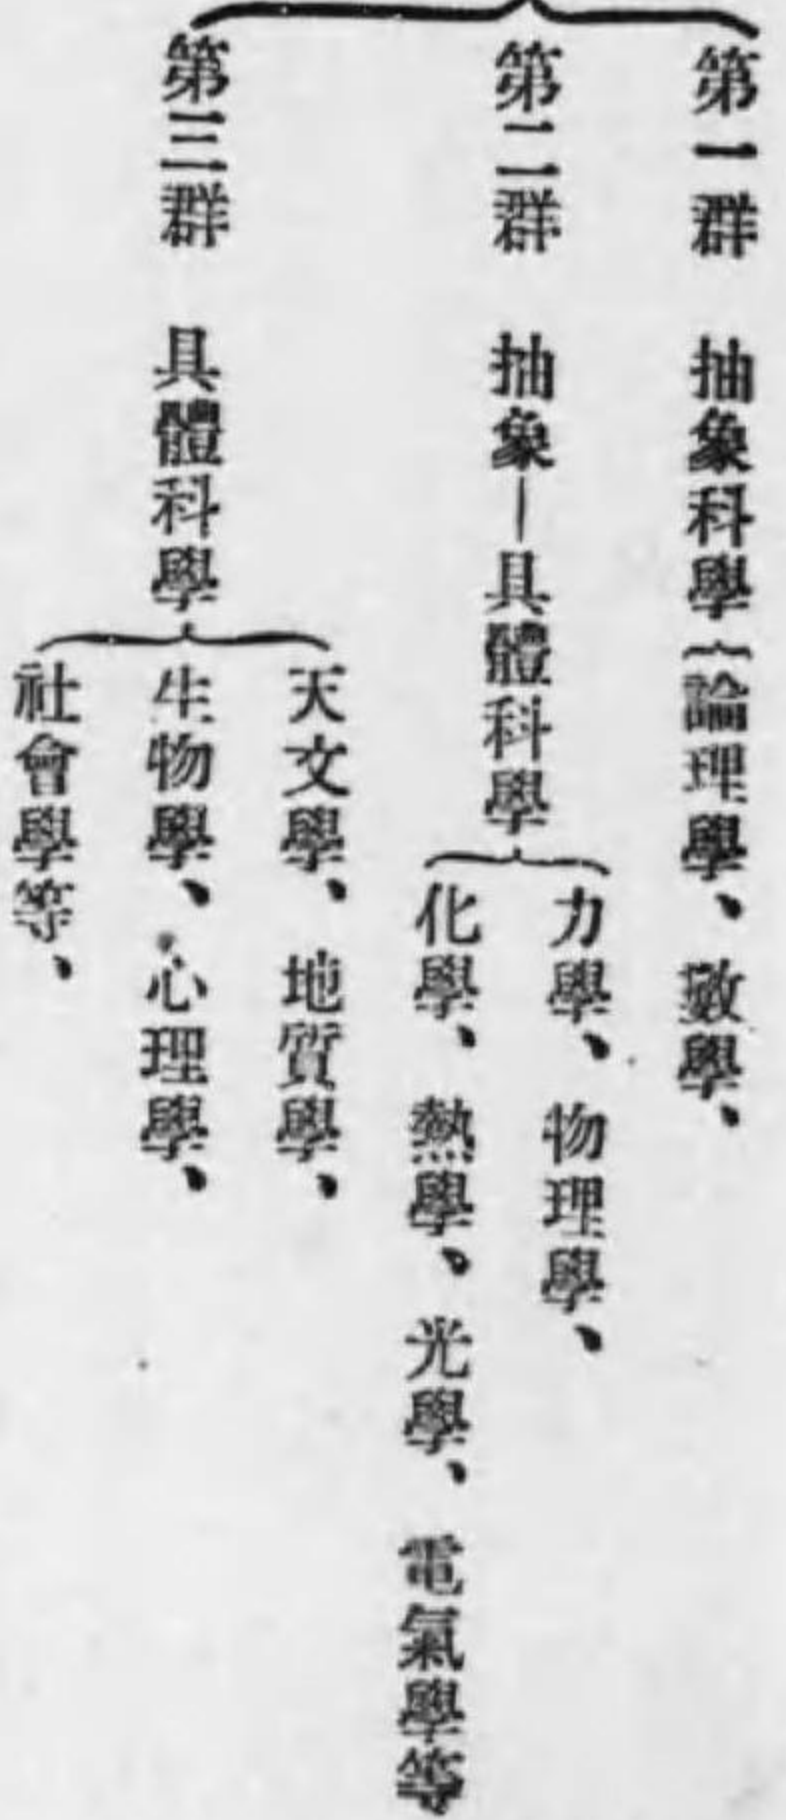 第一群 抽象科學 論理學、數學、
第二群 抽象—具體科學
力學、物理學、
化學、熱學、光學、電氣學等
第三群 具體科學
天文學、地質學、
生物學、心理學、
社會學等、